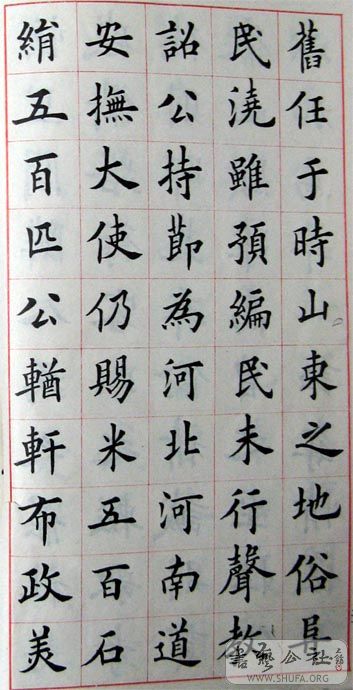 舊任于時山東之地俗阜
民澆雖預編民未行聲教
詔公持節為河北河南道
安撫大使仍賜米五百石
絹五百匹公輶軒布政美
書藝公社
WWW.SHUFA.ORG